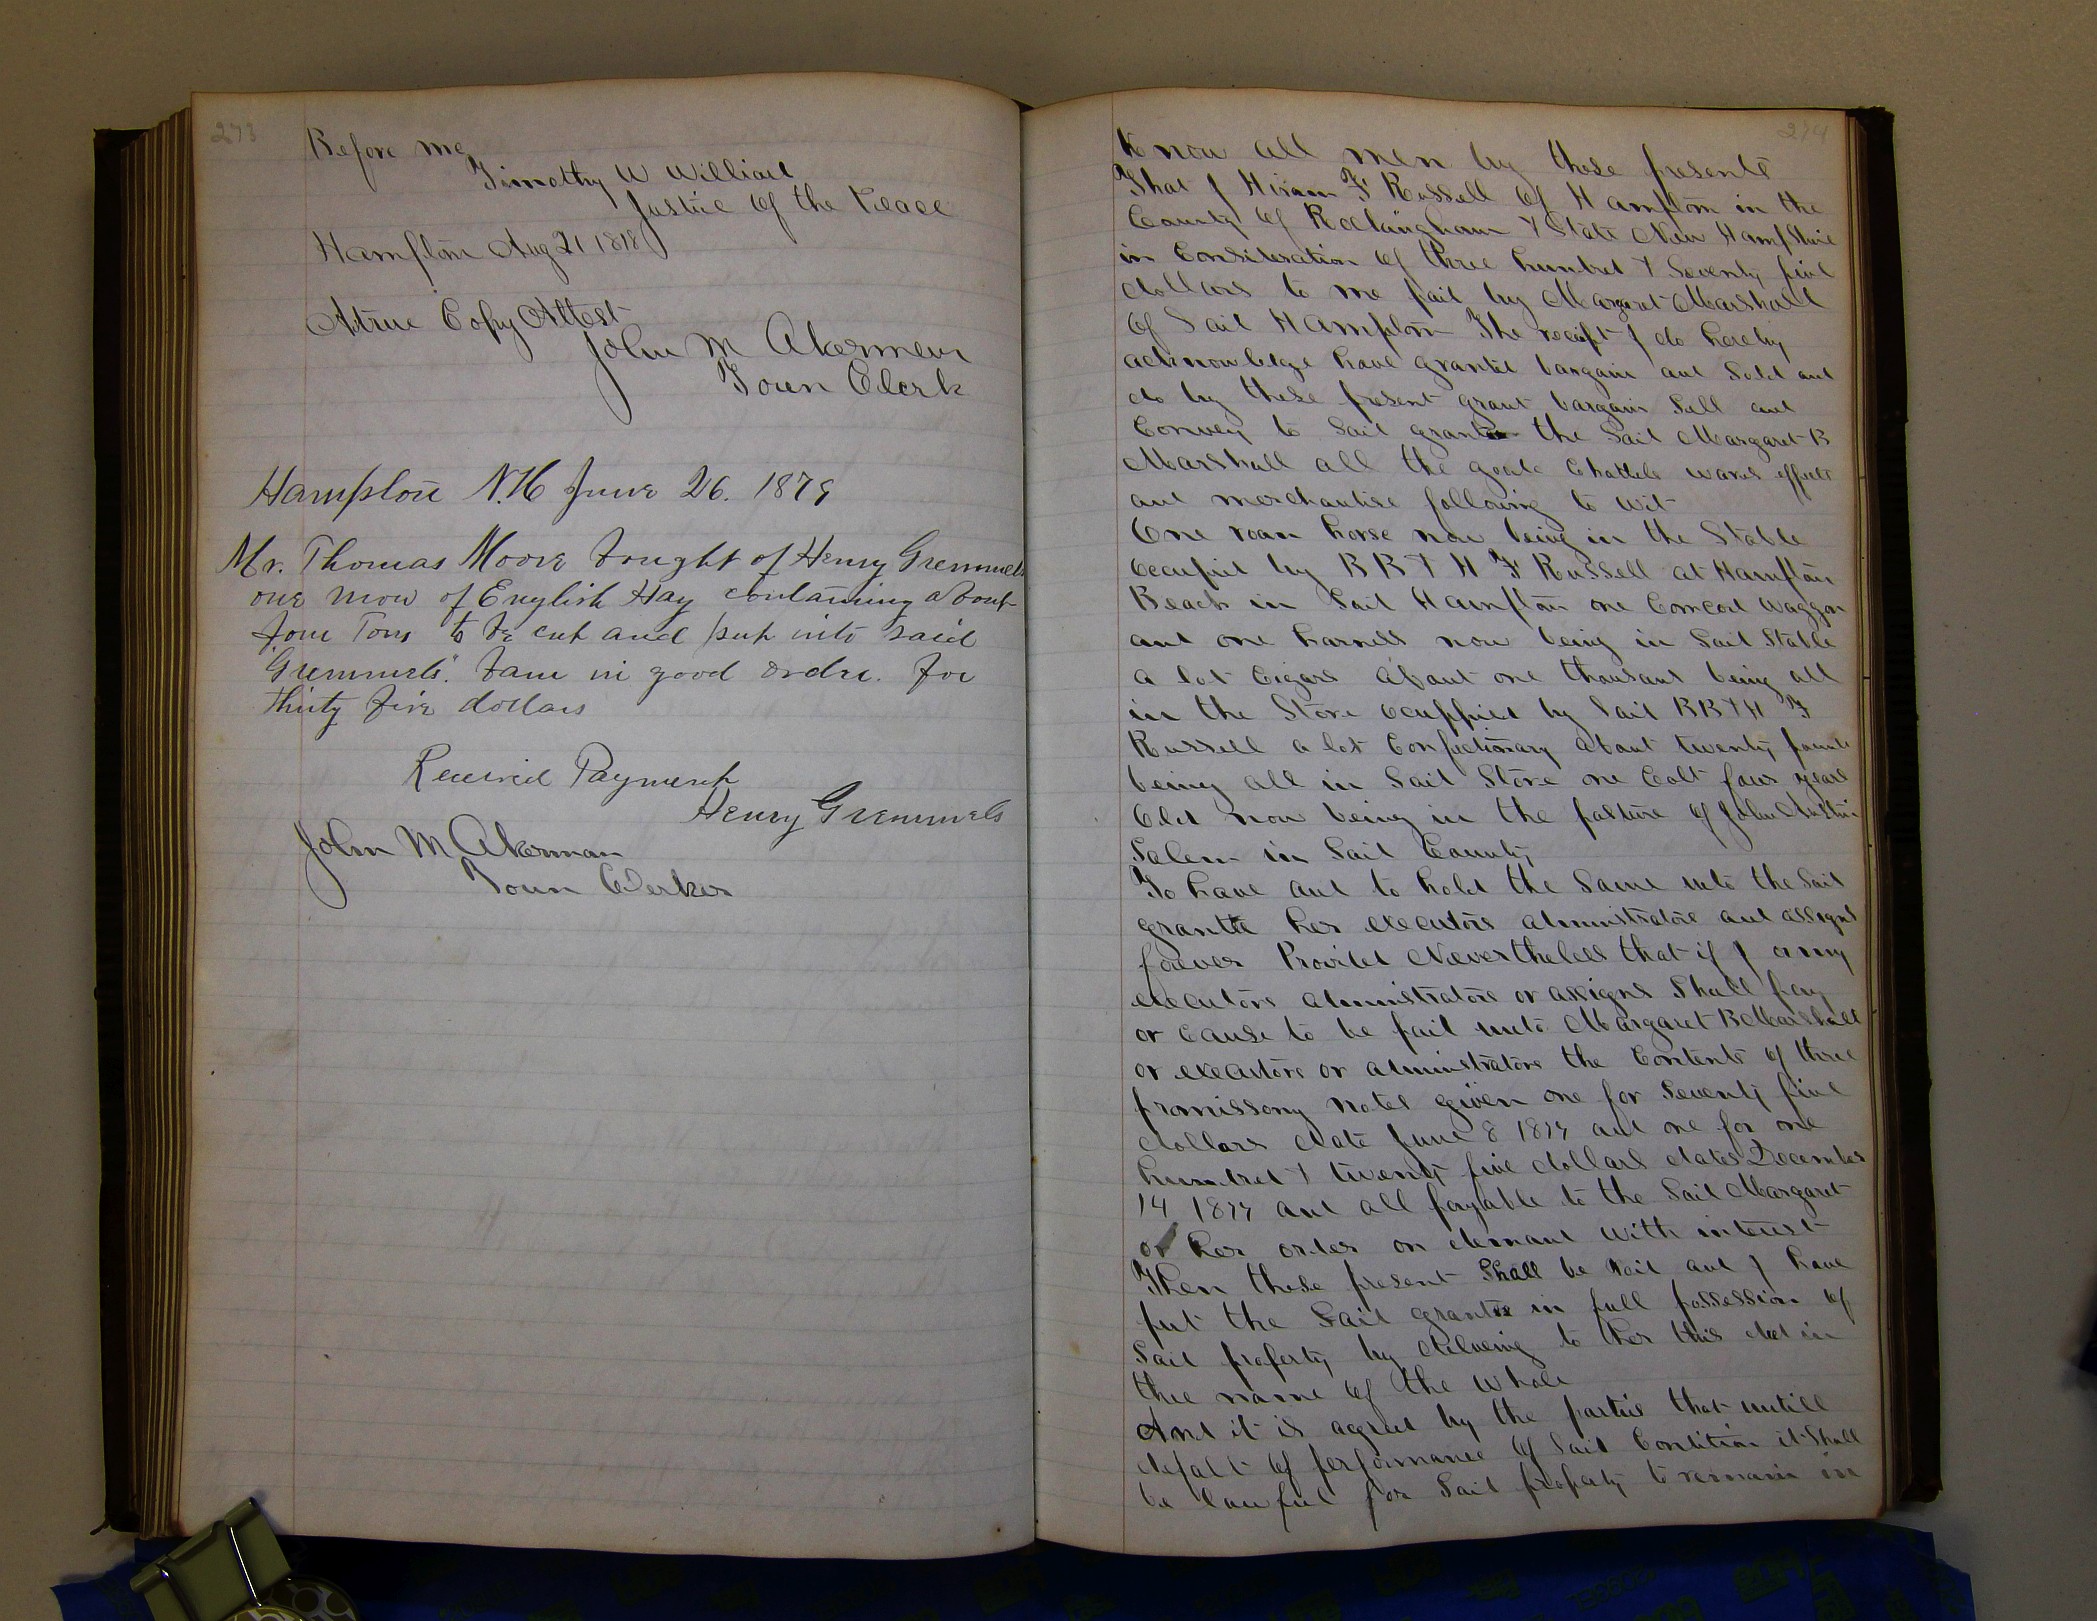 273
Before me
Timothy W Williard
Justice of the Peace
Hampton Aug 21 1818
A true Copy Attest
John M Akerman
Town Clerk
Hampton N.H June 26. 1879
Mr. Thomas Moore bought of Henry Gremmels
one mow of English Hay containing about
four Tons to be cut and put into said
Gremmels' barn in good order. for
thirty five dollars
Received Payment
Henry Gremmels
John M Akerman
Town Clerk
274
Know all men by these presents
That I Hiram F Russell of Hampton in the
County of Rockingham & State New Hampshire
in Consideration of three hundred & Seventy five
dollars to me paid by Margaret Marshall
of Said Hampton The receipt I do hereby
acknowledge have granted bargain and Sold and
do by these present grant bargain Sell and
Convey to Said grantee the Said Margaret B
Marshall all the goods Chattels wares effects
and merchandise following to wit
One roan horse now being in the Stable
occupied by B B & H F Russell at Hampton
Beach in Said Hampton one Concord Waggon
and one harness now being in Said Stable
a lot Cigars about one thousand being all
in the Store occuppied by Said B B & H F
Russell a lot Confectionary about twenty pounds
being all in Said Store one Colt four years
Old now being in the pasture of John
Salem in Said County
To have and to hold the Same unto the Said
grantee her executors administrators and assigns
forever Provided Nevertheless that if I or my
executors administrators or assigns Shall pay
or cause to be paid unto Margaret B Marshall
or executors or administrators the Contents of three
promissory notes given one for Seventy five
dollars date June 8 1877 and one for one
hundred & twenty five dollars dated December
14 1877 and all payable to the Said Margaret
or her order on demand with interest
Then these present Shall be Void and I have
put the Said grantee in full possession of
Said property by delivering to her this deed in
the name of the Whole
And it is agreed by the parties that untill
default of performance of Said Condition it Shall
be lawful for Said property to remain in